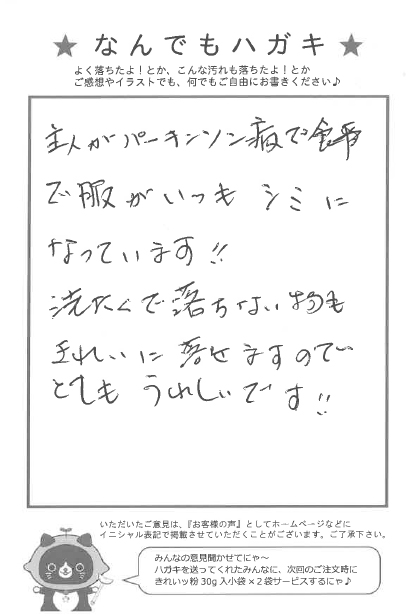 ★なんでもハガキ★
よく落ちたよ！とか、こんな汚れも落ちたよ！とか
ご感想やイラストでも、何でもご自由にお書きください♪
主人がパーキンソン病で食事
で服がいつも シミに
なっています!!
洗たくで落ちない物も
きれいに落せますので
とてもうれしいです!!
いただいたご意見は、『お客様の声』としてホームページなどに
イニシャル表記で掲載させていただくことがございます。ご了承下さい。
みんなの意見聞かせてにゃ～
ハガキを送ってくれたみんなに、次回のご注文時に
きれいッ粉 30g 入小袋×２袋サービスするにゃ♪